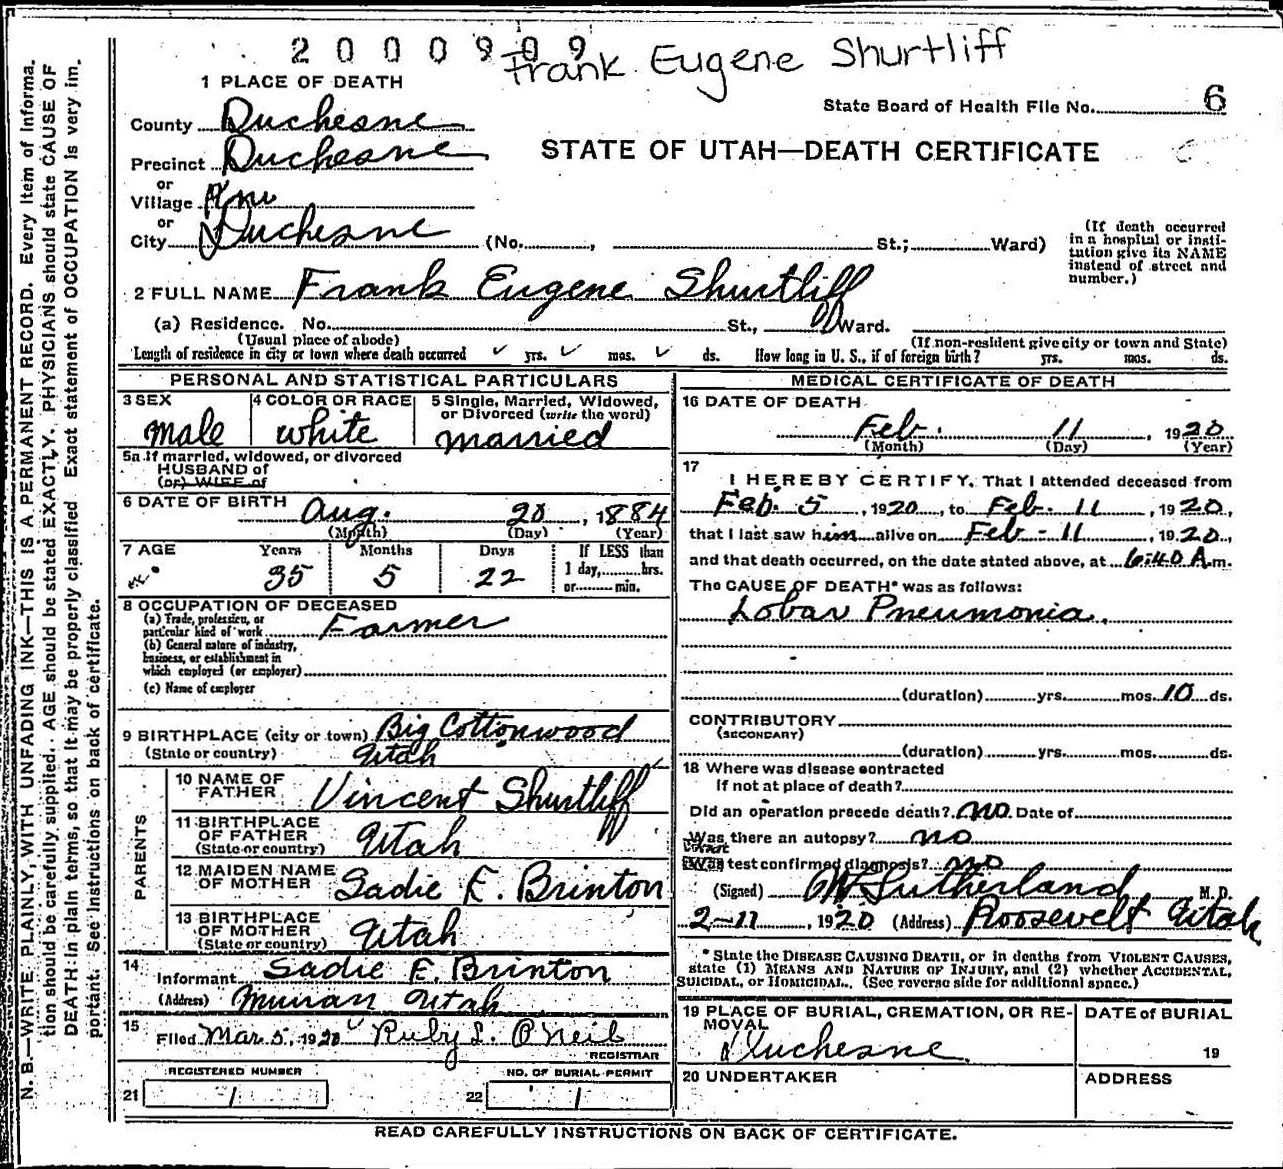 2000909
Frank Eugene Shurtliff
1 PLACE OF DEATH
State Board of Health File No. 6
County Duchesne
STATE OF UTAH—DEATH CERTIFICATE
Precinct Duchesne
or
Village
or
City Duchesne (No. , St.; Ward)
(If death occurred in a hospital or insti-
tution give its NAME
instead of street and
number.)
2 FULL NAME Frank Eugene Shurtliff
(a) Residence. No. St., Ward.
(Usual place of abode) (If non-resident give city or town and State)
Length of residence in city or town where death occurred yrs. mos. ds. How long in U. S., if of foreign birth? yrs. mos. ds.
PERSONAL AND STATISTICAL PARTICULARS
3 SEX 4 COLOR OR RACE 5 Single, Married, Widowed,
or Divorced (write the word)
male white married
5a If married, widowed, or divorced
HUSBAND of
(or) WIFE of
6 DATE OF BIRTH Aug. 20, 1884
(Month) (Day) (Year)
7 AGE Years Months Days If LESS than
1 day, hrs.
or min.
35 5 22
8 OCCUPATION OF DECEASED
(a) Trade, profession, or
particular kind of work Farmer
(b) General nature of industry,
business, or establishment in
which employed (or employer)
(c) Name of employer
9 BIRTHPLACE (city or town) Big Cottonwood
(State or country) Utah
PARENTS
10 NAME OF
FATHER Vincent Shurtliff
11 BIRTHPLACE
OF FATHER
(State or country) Utah
12 MAIDEN NAME
OF MOTHER Sadie E. Brinton
13 BIRTHPLACE
OF MOTHER
(State or country) Utah
14 Informant Sadie E. Brinton
(Address) Murray Utah
15 Filed Mar. 5, 1920 Ruby L. O'Neil
REGISTRAR
REGISTERED NUMBER NO. OF BURIAL PERMIT
21 22
MEDICAL CERTIFICATE OF DEATH
16 DATE OF DEATH
Feb. 11, 1920
(Month) (Day) (Year)
17
I HEREBY CERTIFY, That I attended deceased from
Feb. 5, 1920, to Feb. 11, 1920,
that I last saw him alive on Feb - 11, 1920,
and that death occurred, on the date stated above, at 6:40 A.m.
The CAUSE OF DEATH* was as follows:
Lobar Pneumonia.
(duration) yrs. mos. 10 ds.
CONTRIBUTORY
(SECONDARY)
(duration) yrs. mos. ds.
18 Where was disease contracted
If not at place of death?
Did an operation precede death? no Date of
Was there an autopsy? no
test confirmed diagnosis? no
(Signed) Sutherland M. D.
2-11, 1920 (Address) Roosevelt Utah
* State the DISEASE CAUSING DEATH, or in deaths from VIOLENT CAUSES,
state (1) MEANS AND NATURE OF INJURY, and (2) whether ACCIDENTAL,
SUICIDAL, or HOMICIDAL. (See reverse side for additional space.)
19 PLACE OF BURIAL, CREMATION, OR RE-
MOVAL
Duchesne
DATE of BURIAL
19
20 UNDERTAKER ADDRESS
READ CAREFULLY INSTRUCTIONS ON BACK OF CERTIFICATE.
N. B.—WRITE PLAINLY, WITH UNFADING INK—THIS IS A PERMANENT RECORD. Every item of informa-
tion should be carefully supplied. AGE should be stated EXACTLY. PHYSICIANS should state CAUSE OF
DEATH in plain terms, so that it may be properly classified. Exact statement of OCCUPATION is very im-
portant. See instructions on back of certificate.